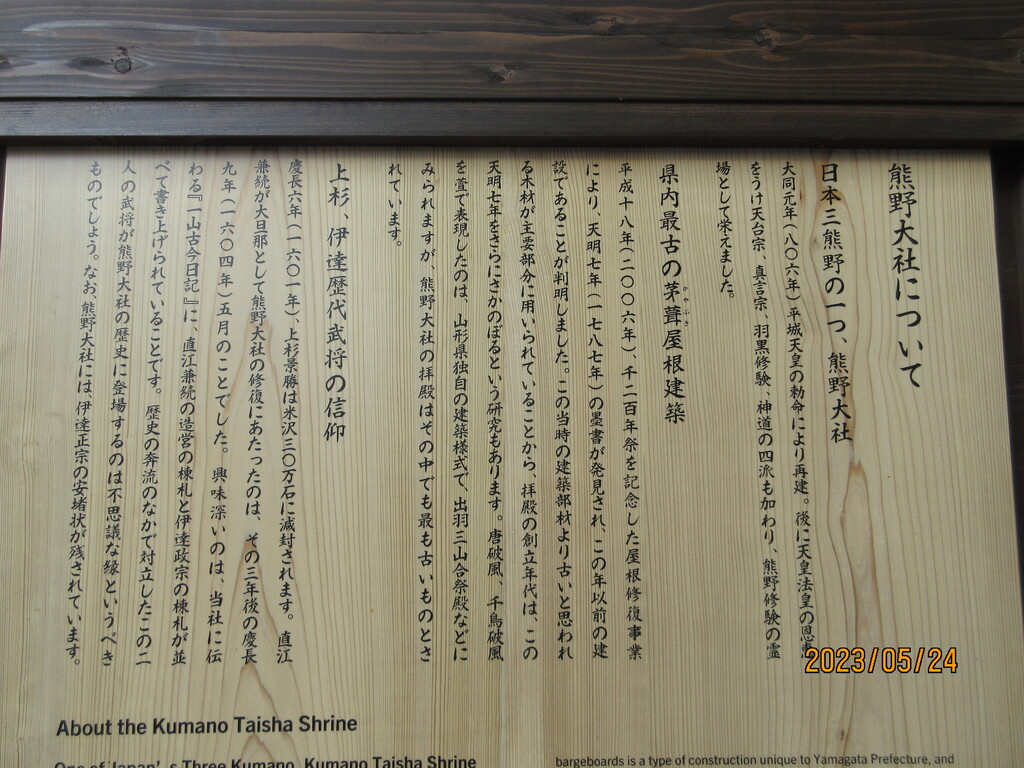 熊野大社について
日本三熊野の一つ、熊野大社
大同元年（八〇六年）平城天皇の勅命により再建。後に天皇法皇の恩恵
をうけ天台宗、真言宗、羽黒修験、神道の四派も加わり、熊野修験の霊
場として栄えました。
県内最古の茅葺屋根建築
かやぶき
平成十八年（二〇〇六年）、千二百年祭を記念した屋根修復事業
により、天明七年（一七八七年）の墨書が発見され、この年以前の建
設であることが判明しました。この当時の建築部材より古いと思われ
る木材が主要部分に用いられていることから、拝殿の創立年代は、この
天明七年をさらにさかのぼるという研究もあります。唐破風、千鳥破風
を萱で表現したのは、山形県独自の建築様式で、出羽三山合祭殿などに
みられますが、熊野大社の拝殿はその中でも最も古いものとさ
れています。
上杉、伊達歴代武将の信仰
慶長六年（一六〇一年）、上杉景勝は米沢三〇万石に減封されます。直江
兼続が大旦那として熊野大社の修復にあたったのは、その三年後の慶長
九年（一六〇四年）五月のことでした。興味深いのは、当社に伝
わる『一山古今日記』に、直江兼続の造営の棟札と伊達政宗の棟札が並
べて書き上げられていることです。歴史の奔流のなかで対立したこの二
人の武将が熊野大社の歴史に登場するのは不思議な縁というべき
ものでしょう。なお、熊野大社には、伊達正宗の安堵状が残されています。
2023/05/24
About the Kumano Taisha Shrine
One of Japan's Three Kumano, Kumano Taisha Shrine
bargeboards is a type of construction unique to Yamagata Prefecture, and